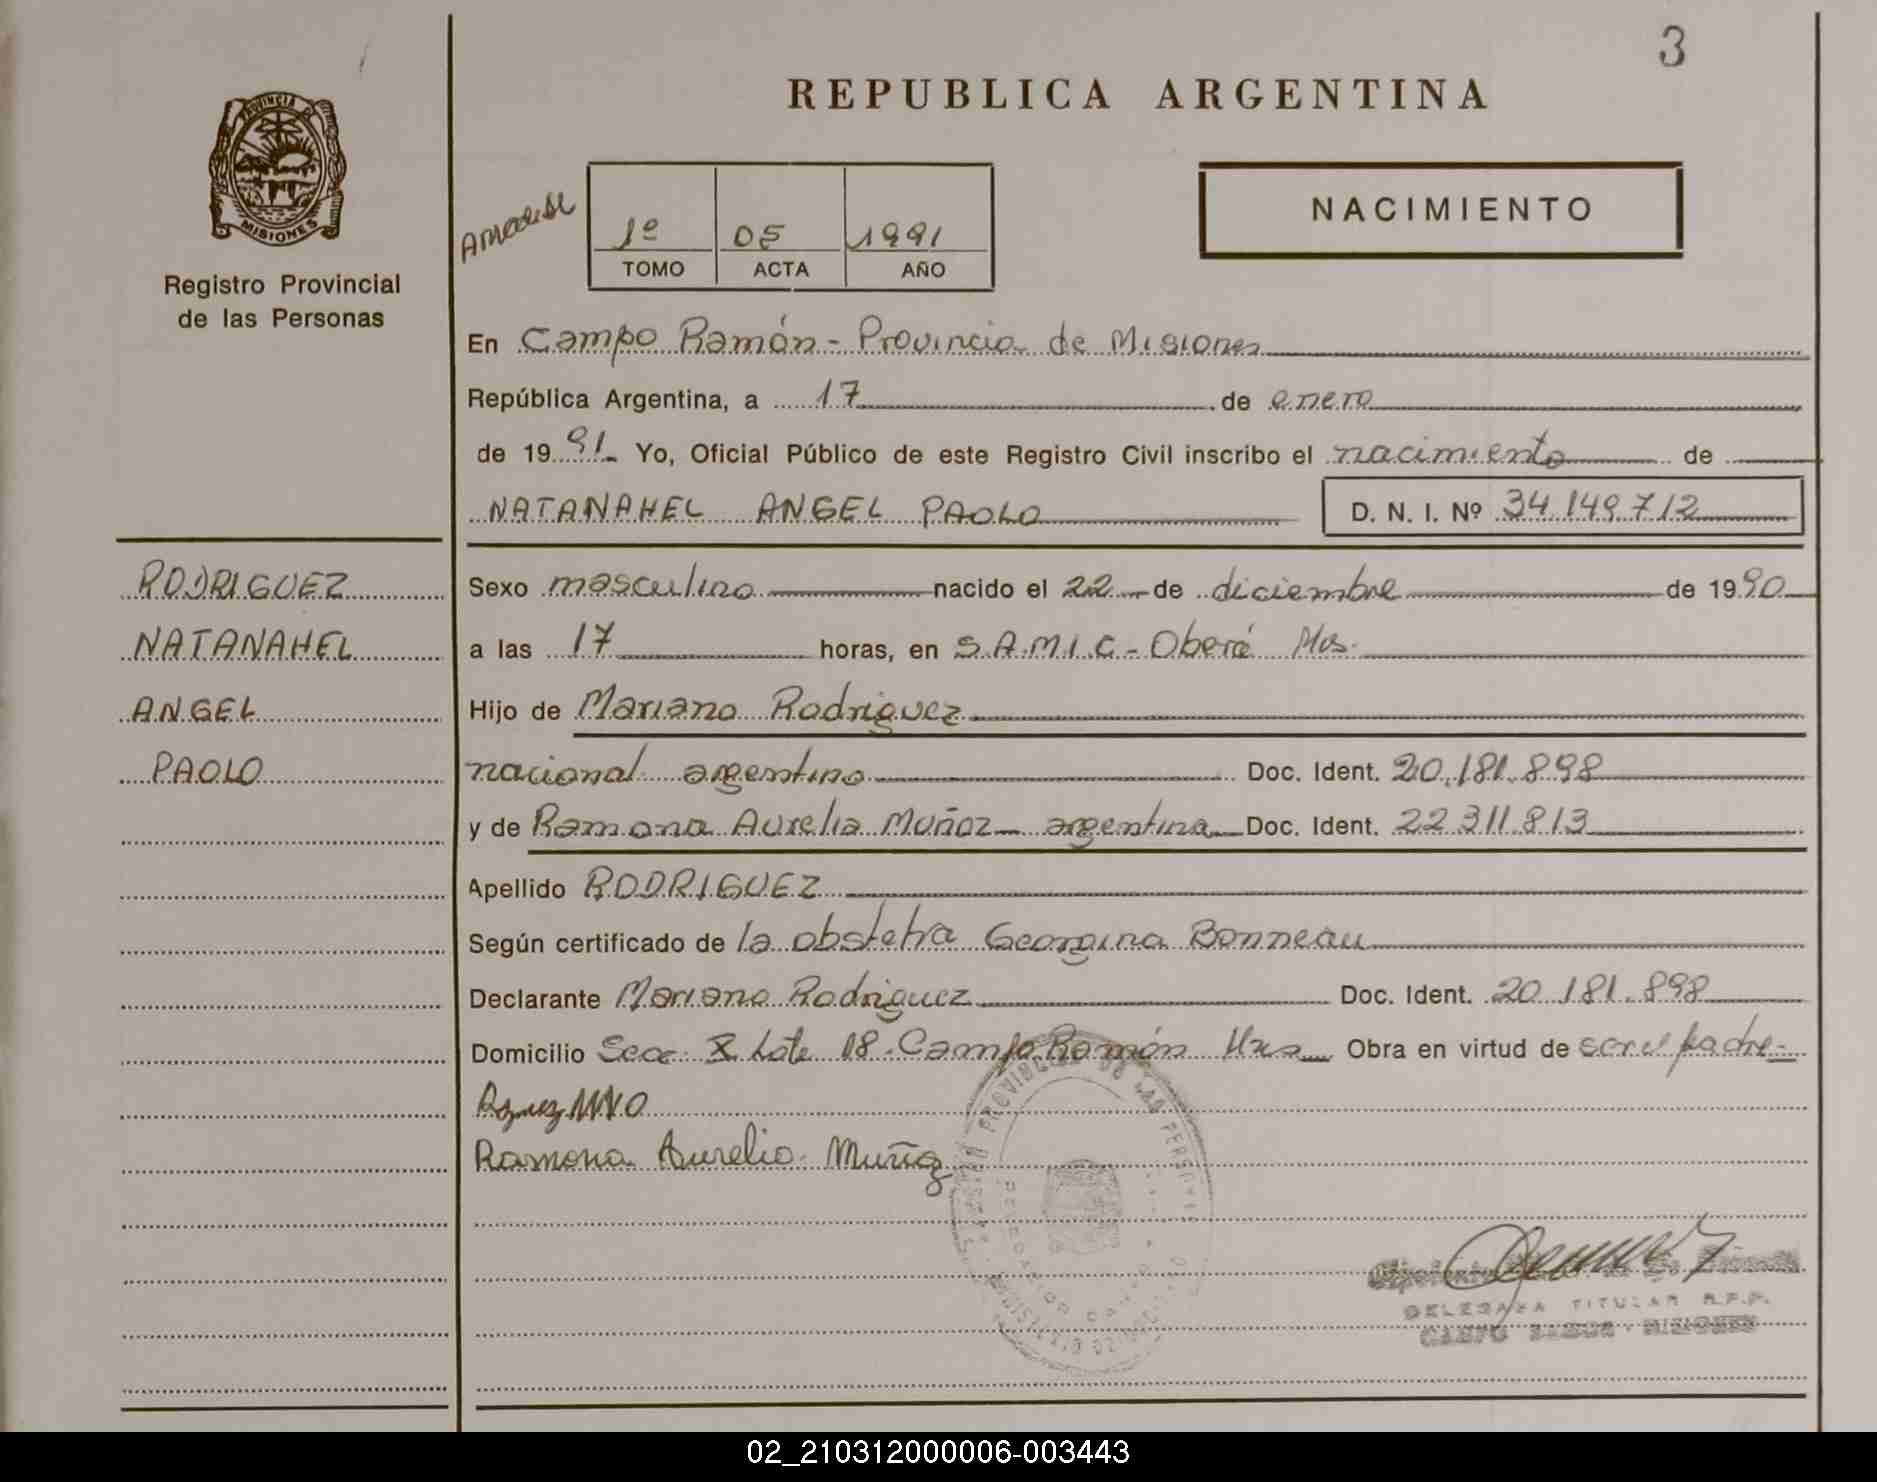 3
REPUBLICA ARGENTINA
PROVINCIA D
MISIONES
Registro Provincial
de las Personas
1º 05 1991
TOMO ACTA AÑO
NACIMIENTO
En Campo Ramón - Provincia de Misiones
República Argentina, a 17 de enero
de 1991 Yo, Oficial Público de este Registro Civil inscribo el nacimiento de
NATANAHEL ANGEL PAOLO D. N. I. Nº 34.149.712
RODRIGUEZ
NATANAHEL
ANGEL
PAOLO
Sexo masculino nacido el 22 de diciembre de 1990
a las 17 horas, en S.A.M.I.C - Oberá Mns.
Hijo de Mariano Rodriguez
nacional argentino Doc. Ident. 20.181.898
y de Ramona Aurelia Muñoz argentina Doc. Ident. 22.311.813
Apellido RODRIGUEZ
Según certificado de la obstetra Georgina Bonneau
Declarante Mariano Rodriguez Doc. Ident. 20.181.898
Domicilio Secc. X Lote 18 - Campo Ramón Mns Obra en virtud de ser el padre-
Ramona Aurelia Muñoz
DELEGADA TITULAR R.P.P.
CAMPO RAMON - MISIONES
02_210312000006-003443